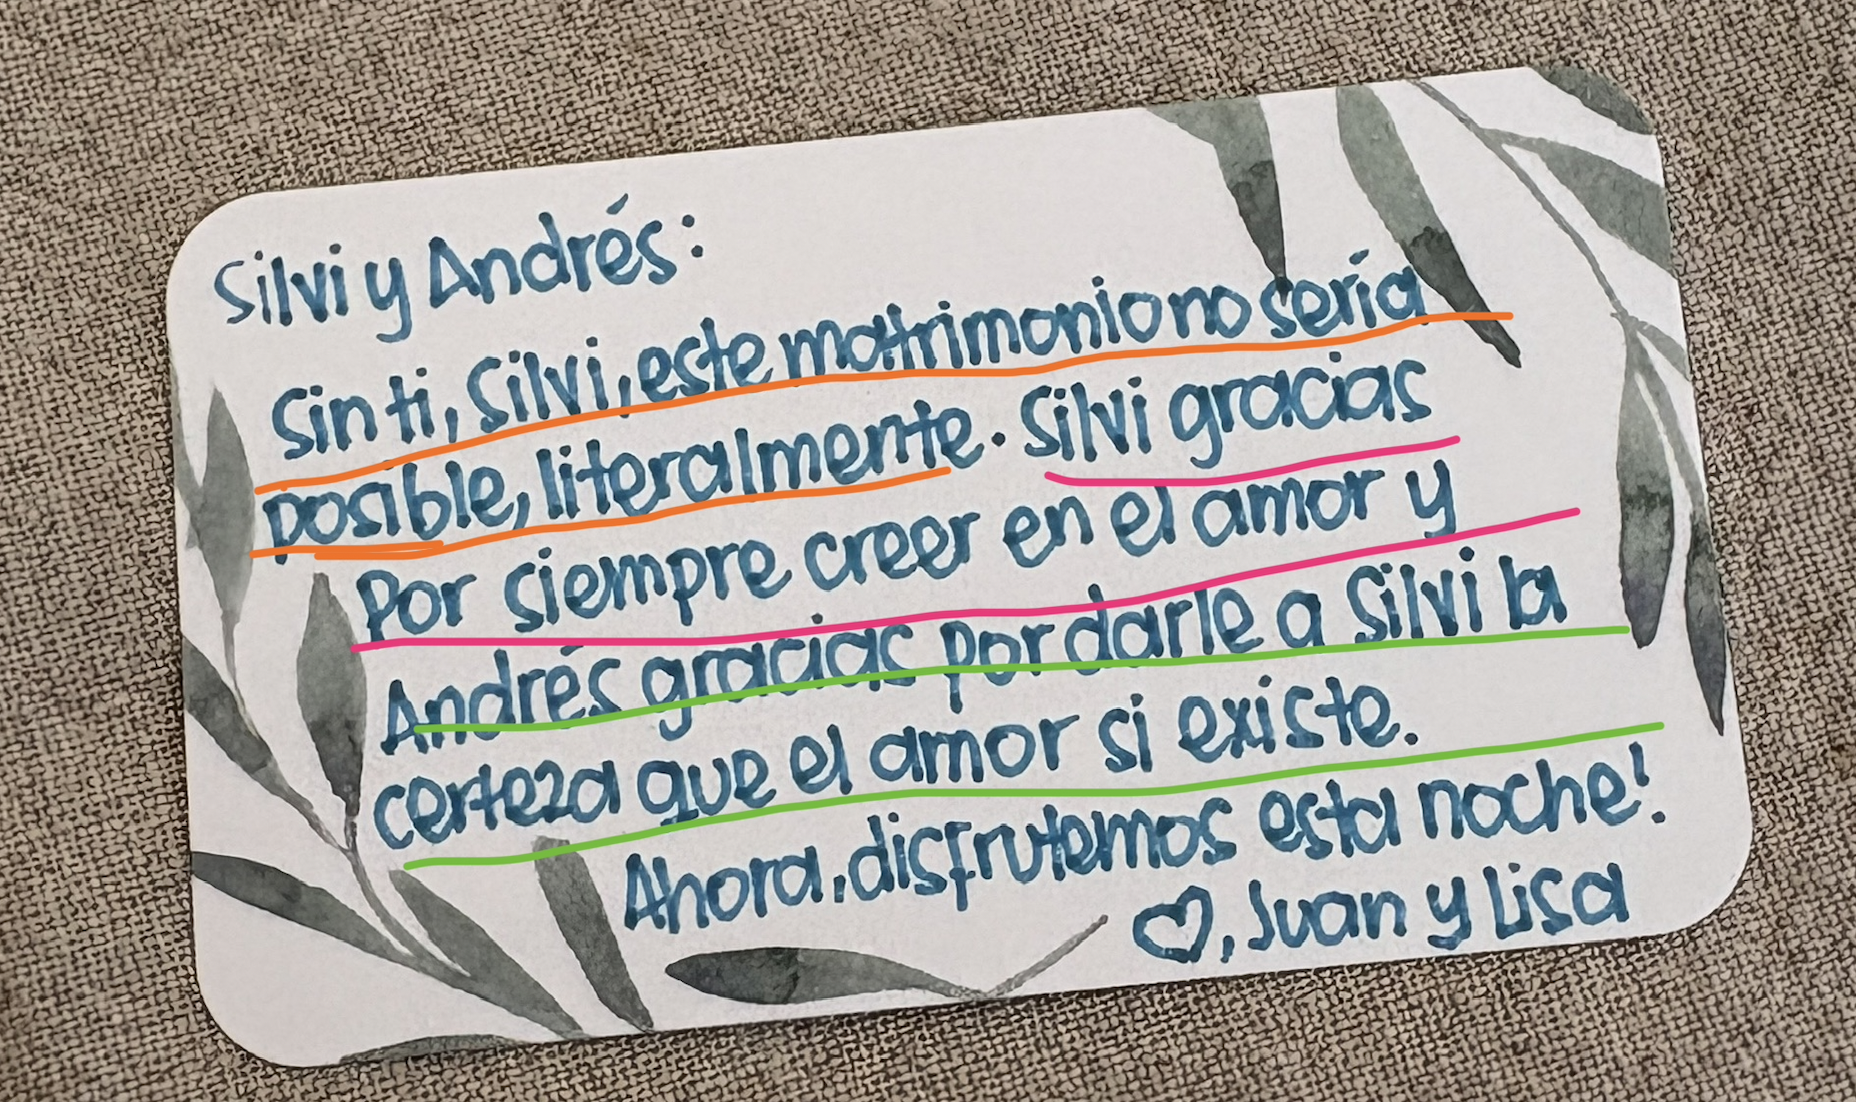 Silvi y Andrés:
Sin ti, Silvi, este matrimonio no sería
posible, literalmente. Silvi gracias
Por siempre creer en el amor y
Andrés gracias por darle a Silvi la
certeza que el amor si existe.
Ahora, disfrutemos esta noche!.
♡, Juan y Lisa